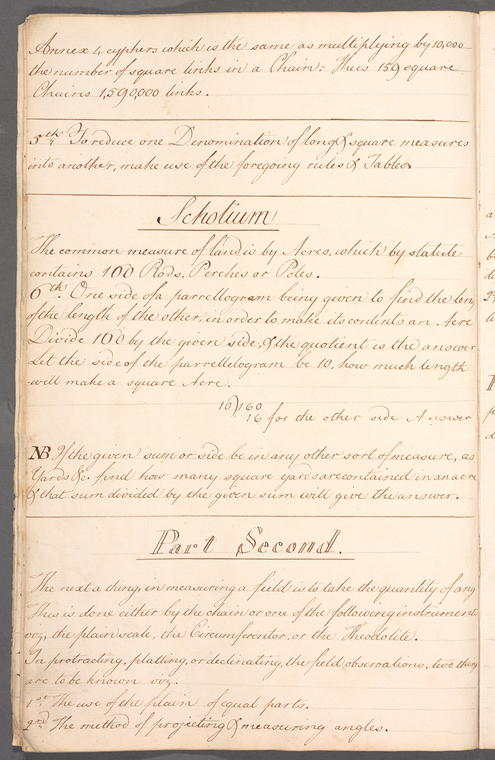 Annex 4 cyphers which is the same as multiplying by 10,000
the number of square links in a Chain: Thus 159 square
Chains 1,590,000 links.
5th. To reduce one Denomination of long & square measures
into another, make use of the foregoing rules & Tables
Scholium
The common measure of land is by Acres, which by statute
contains 160 Rods, Perches or Poles.
6th. One side of a parrellogram being given to find the len
of the length of the other, in order to make its contents an Acre
Divide 160 by the given side, & the quotient is the answer
Let the side of the parrellelogram be 10, how much length
will make a square Acre.
10)160
16 for the other side Answer
NB. If the given sum or side be in any other sort of measure, as
Yards &c. find how many square yards are contained in an acre
& that sum divided by the given sum will give the answer.
Part Second.
The next a thing, in measuring a field is to take the quantity of ang
This is done either by the chain or one of the following instrument
viz, the plain scale, the Circumferentor, or the Theodolite.
In protracting, platting, or declinating, the field observations, two thing
are to be known viz.
1st. The use of the plain of equal parts.
2nd. The method of projecting & measuring angles.